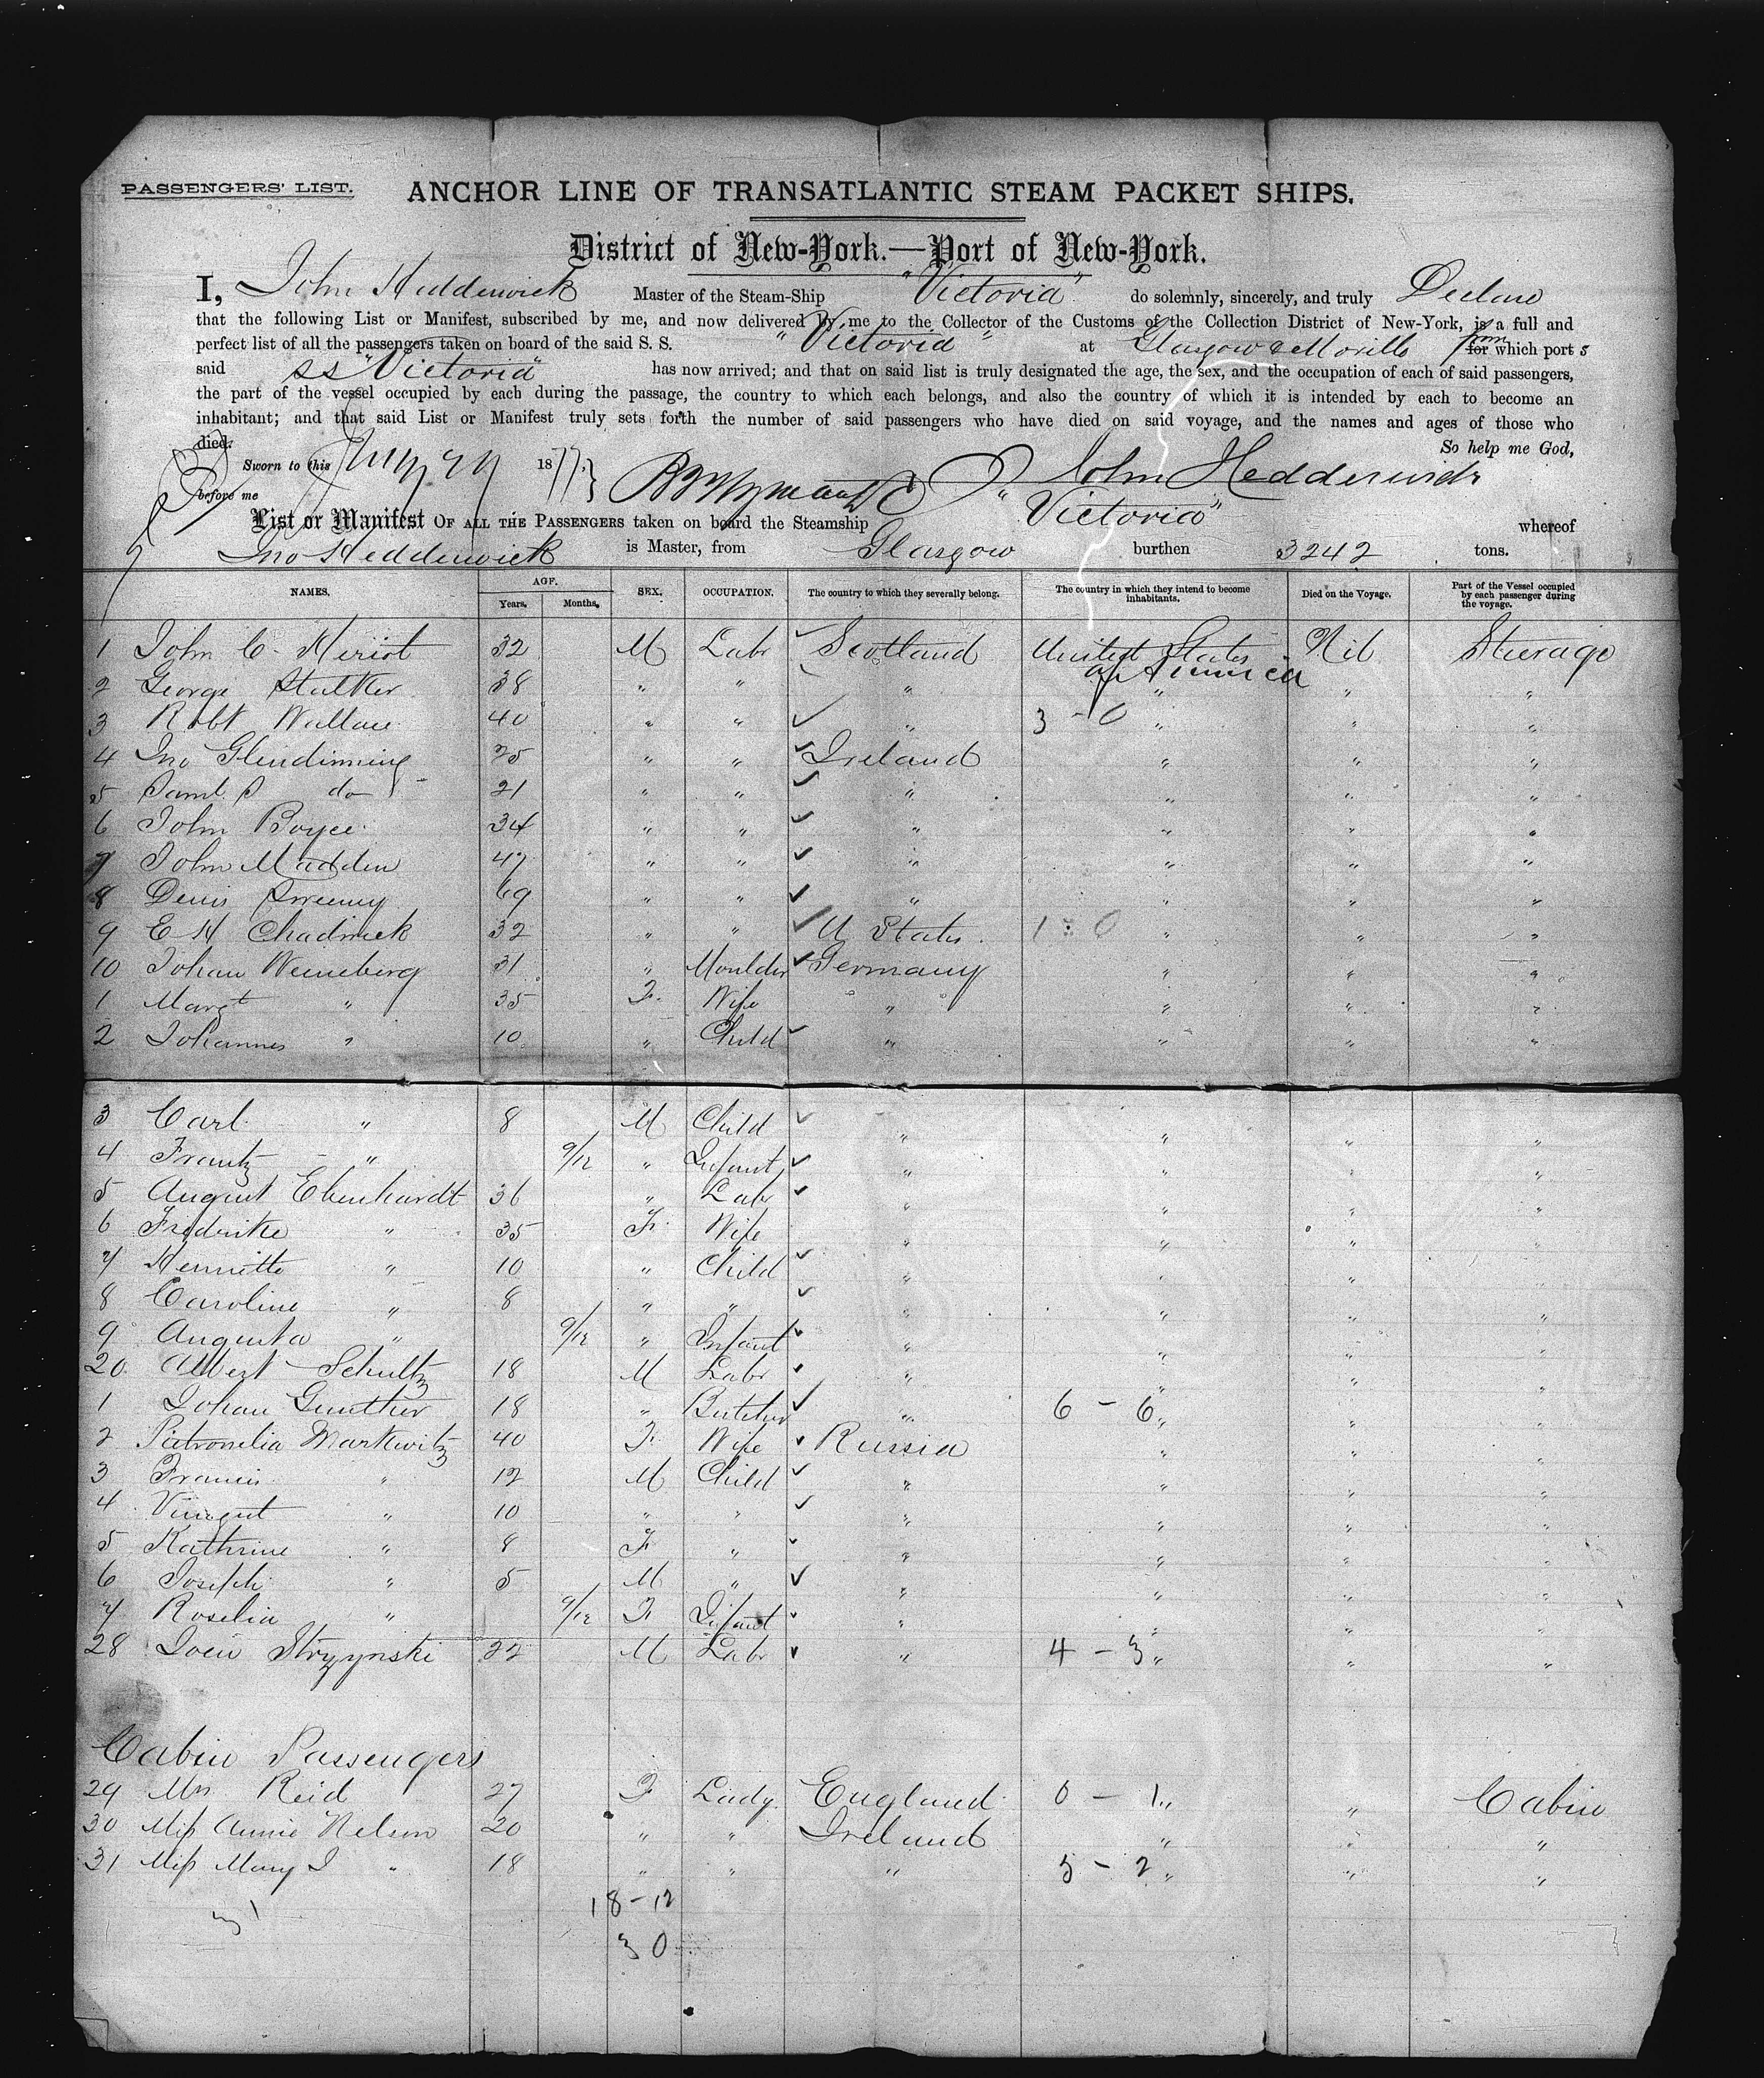 PASSENGERS' LIST.
ANCHOR LINE OF TRANSATLANTIC STEAM PACKET SHIPS.
District of New-York.—Port of New-York.
I, John Hedderwick Master of the Steam-Ship "Victoria" do solemnly, sincerely, and truly Declare
that the following List or Manifest, subscribed by me, and now delivered by me to the Collector of the Customs of the Collection District of New-York, is a full and
perfect list of all the passengers taken on board of the said S. S. "Victoria" at Glasgow & Moville from which port s
said ss "Victoria" has now arrived; and that on said list is truly designated the age, the sex, and the occupation of each of said passengers,
the part of the vessel occupied by each during the passage, the country to which each belongs, and also the country of which it is intended by each to become an
inhabitant; and that said List or Manifest truly sets forth the number of said passengers who have died on said voyage, and the names and ages of those who
died.
So help me God,
Sworn to this 1877 John Hedderwick
before me
List or Manifest OF ALL THE PASSENGERS taken on board the Steamship "Victoria" whereof
Jno Hedderwick is Master, from Glasgow burthen 3242 tons.
NAMES. AGE. Years. Months. SEX. OCCUPATION. The country to which they severally belong. The country in which they intend to become inhabitants. Died on the Voyage. Part of the Vessel occupied by each passenger during the voyage.
1 John C. Heriot 32 M Labr Scotland United States of America Nil Steerage
2 George Stalker 38 " " " " " "
3 Robt Wallace 40 " " " 3 - 0 " " "
4 Jno Glendinning 25 " " Ireland " " "
5 Saml. S do 21 " " " " " "
6 John Boyce 34 " " " " " "
7 John Madden 47 " " " " " "
8 Denis Sweeny 69 " " " " " "
9 E H Chadwick 32 " " U States 1 : 0 " " "
10 Johan Wenneberg 31 " Moulder Germany " " "
1 Margt " 35 F. Wife " " " "
2 Johannes " 10 " Child " " " "
3 Carl " 8 M Child " " " "
4 Frantz " 9/12 " Infant " " " "
5 August Ebenhardt 36 " Labr " " " "
6 Frederike " 35 F. Wife " " " "
7 Henriette " 10 " Child " " " "
8 Caroline " 8 " " " " " "
9 Augusta " 9/12 " Infant " " "
20 Albert Schultz 18 M Labr " " " "
1 Johan Gunther 18 " Butcher " 6 - 6 " " "
2 Petronelia Markwitz 40 F. Wife Russia " " "
3 Francis " 12 M Child " " " "
4 Vincent " 10 " " " " " "
5 Kathrine " 8 F " " " " "
6 Joseph " 5 M " " " " "
7 Roselia " 9/12 F Infant " " " "
28 Stryzynski 22 M Labr " 4 - 3 " " "
Cabin Passengers
29 Mrs. Reid 27 F Lady England 0 - 1 " " Cabin
30 Miss Annie Nelson 20 " " Ireland " " "
31 Miss Mary J " 18 " " " 3 - 2 " " "
18-12
31
30